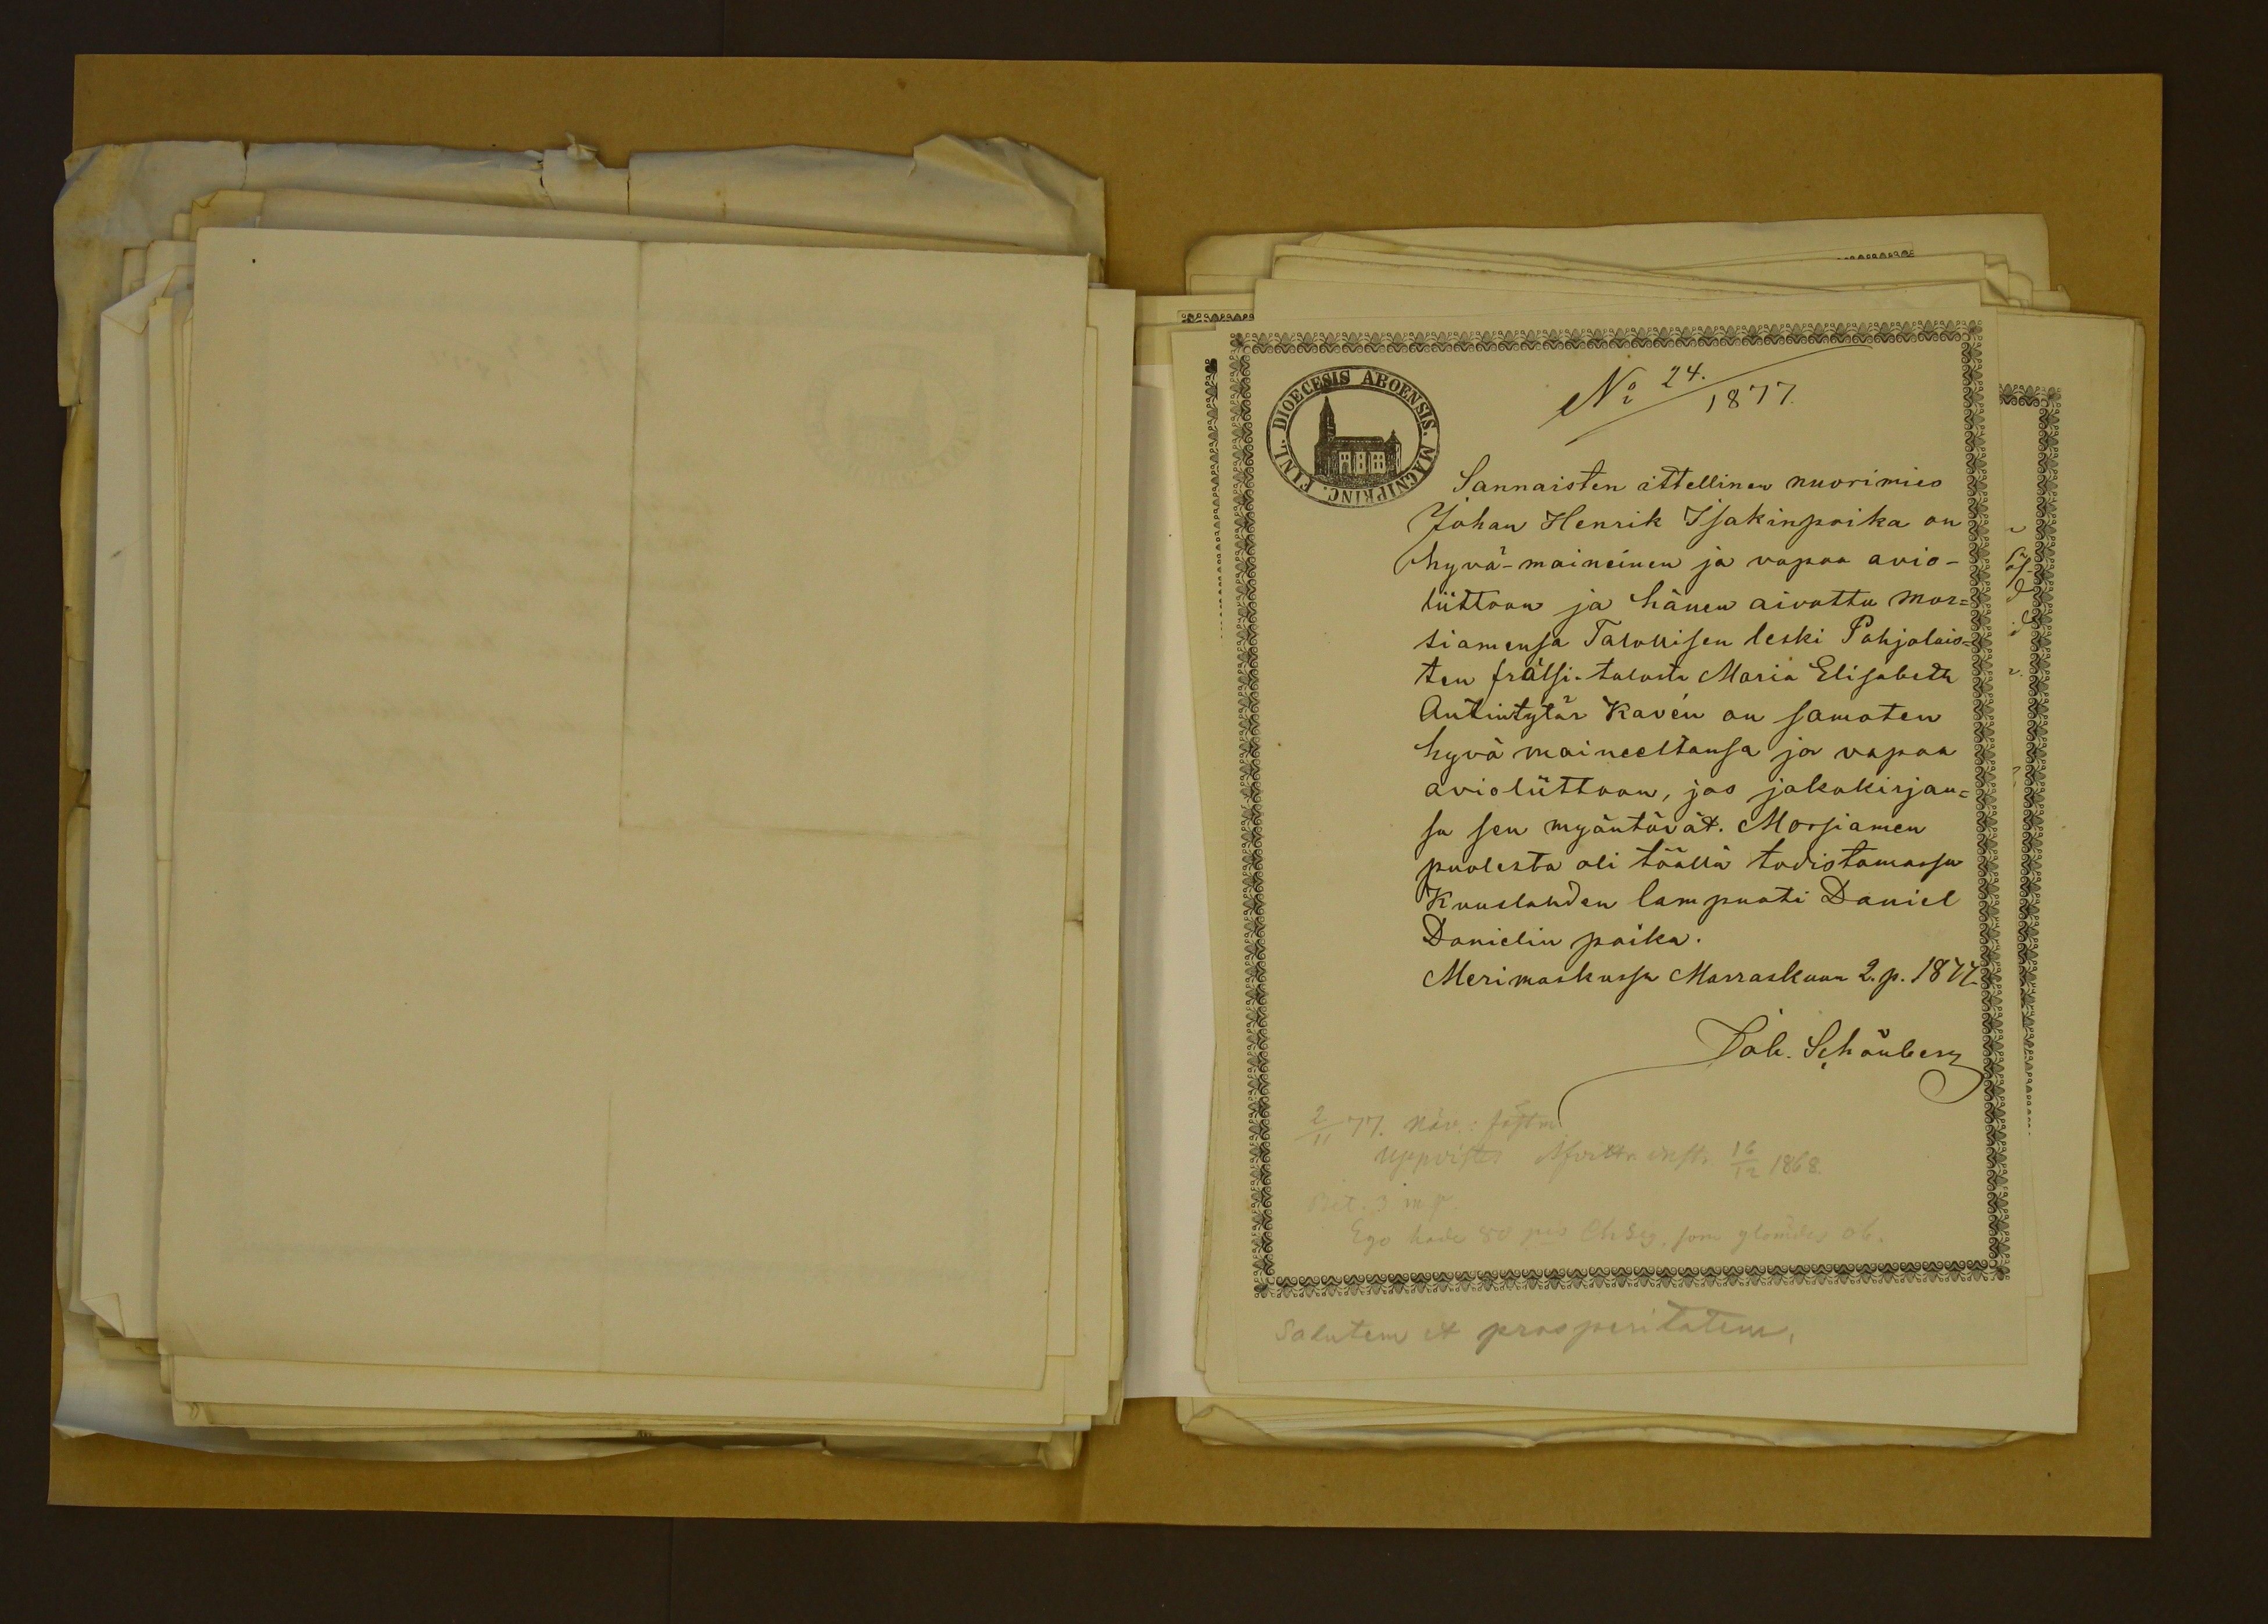 DIOECESIS ABOENSIS. MAGNI PRINC. FINL.
No 24. / 1877.
Sannaisten ittellinen nuorimies
Johan Henrik Isakinpoika on
hyvä-maineinen ja vapaa avio-
liittoon ja hänen aivottu mor=
siamensa Talollisen leski Pohjolais=
ten frälsi-talosta Maria Elisabeth
Antintytär Kavén on samoten
hyvä maineeltansa ja vapaa
avioliittoon, jos jakokirjan=
sa sen myäntävät. Morsiamen
puolesta oli täällä todistamassa
Kuuslahden lampuoti Daniel
Danielin poika.
Merimaskussa Marraskuun 2. p. 1877.
Joh. Schönberg
2/11 77. Näv:
Uppvistes 16/12 1868.
Bet. 3
Ego hade som glömdes
Salutem et prosperitatem,